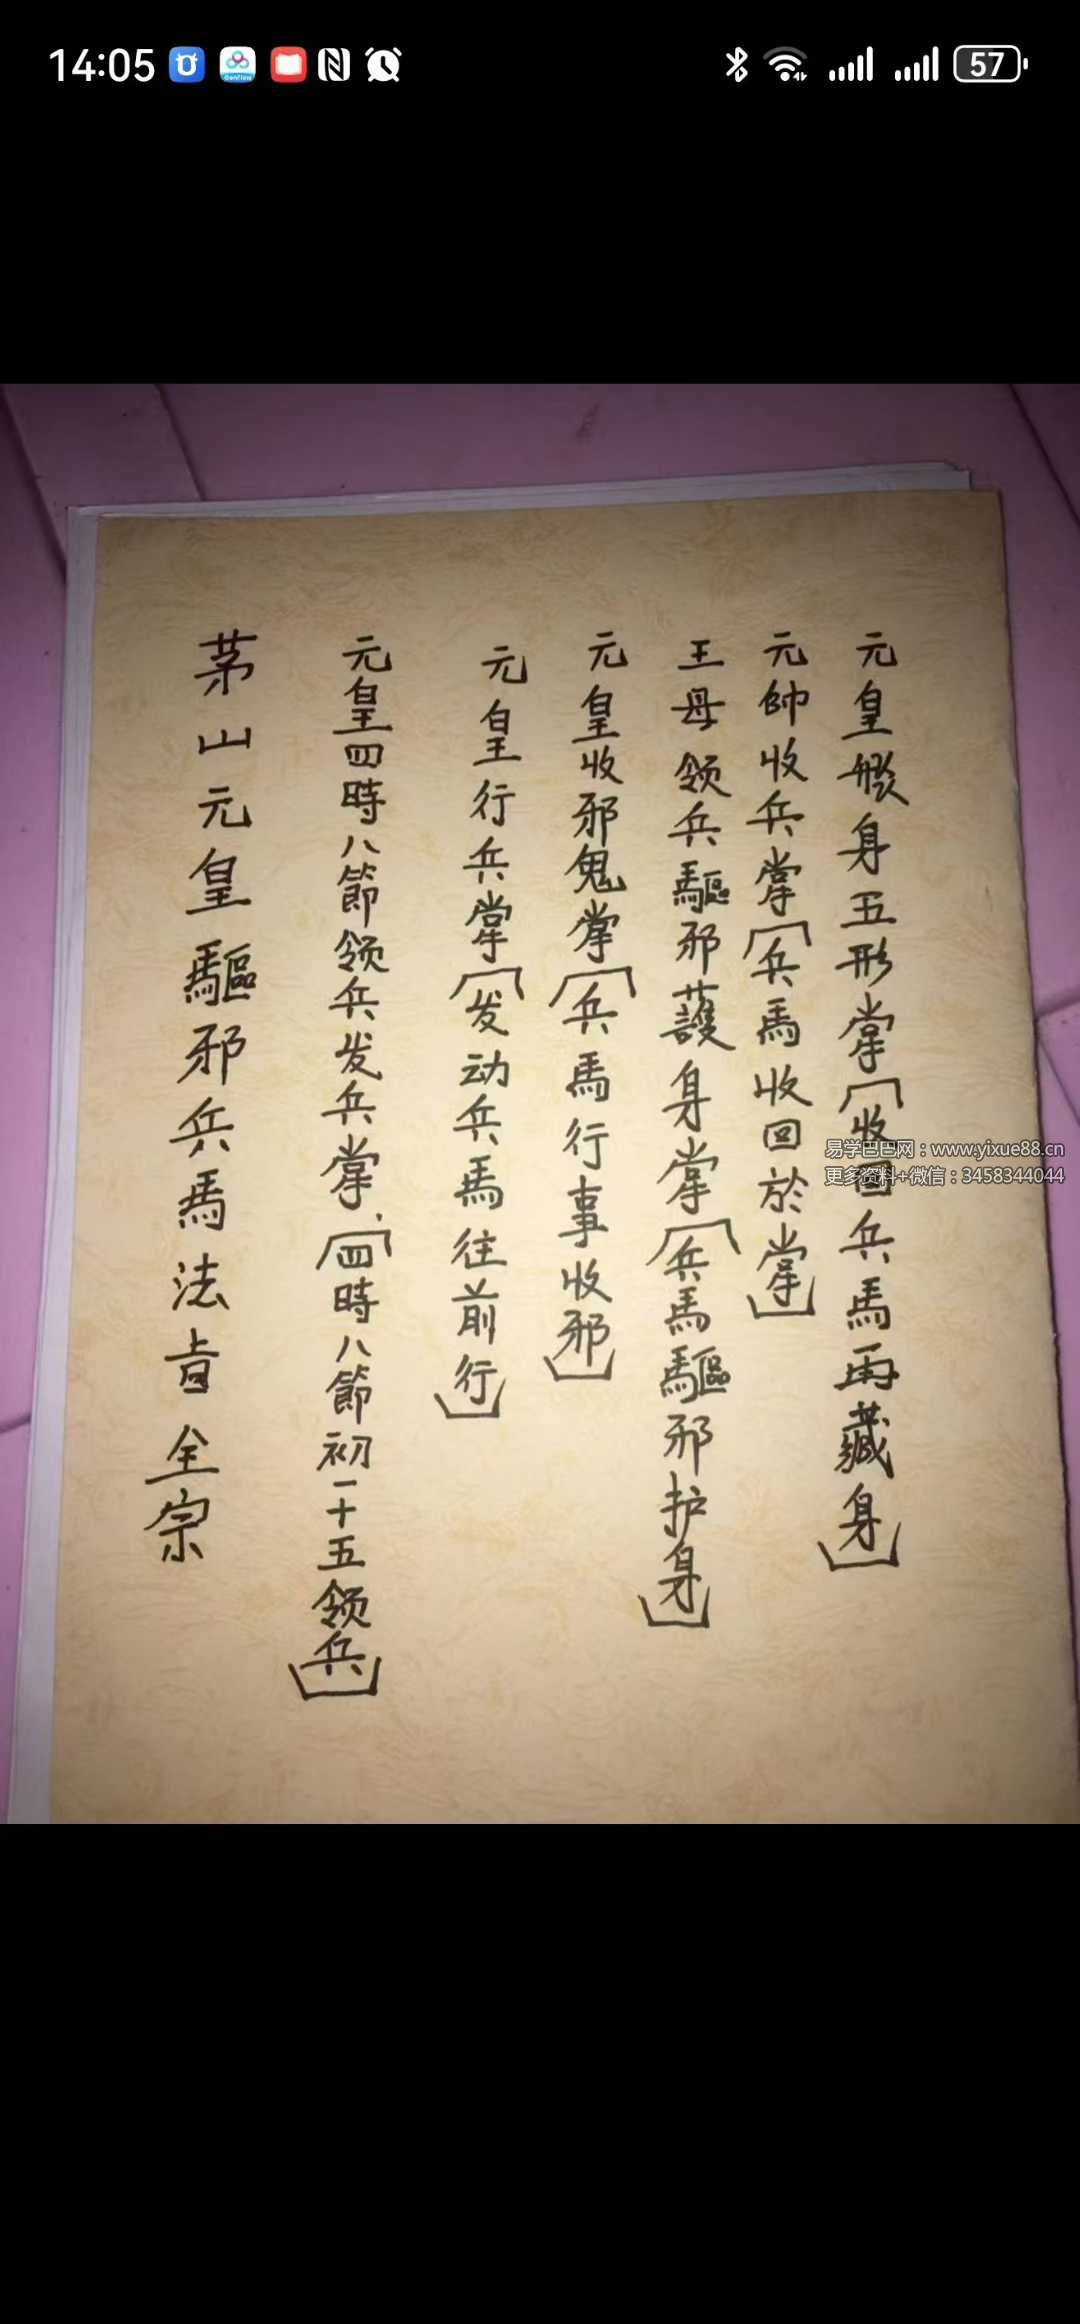 14:05
57
元皇艘身五形掌（收回兵馬再藏身）
元帥收兵掌（兵馬收回於掌）
王母领兵驅邪護身掌（兵馬驅邪护身）
元皇收邪鬼掌（兵馬行事收邪）
元皇行兵掌（发动兵馬往前行）
元皇四時八節领兵发兵掌、（四時八節初一十五领兵）
茅山元皇驅邪兵馬法旨全宗
易学巴巴网：www.yixue88.cn
更多资料+微信：3458344044